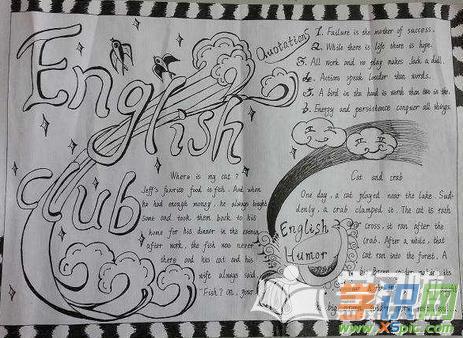 English
club
Quotations
1. Failure is the mother of success.
2. While there is life there is hope.
3. All work and no play makes Jack a dull.
4. Actions speak louder than words.
5. A bird in the hand is worth than two in the
6. Energy and persistence conquer all things.
Where is my cat?
Jeff's favorite food is fish. And when
he had enough money, he always bought
some and took them back to his
home for his dinner in the evening
after work, the fish was never
there and his cat and his
wife always said,
"Fish? oh, your
English
Humor
Cat and crab
One day, a cat played near the lake. Sud-
denly, a crab clamped it. The cat is rash
cross, it ran after the
crab. After a while, that
cat ran into the forest. A
学识网
www.xspic.com